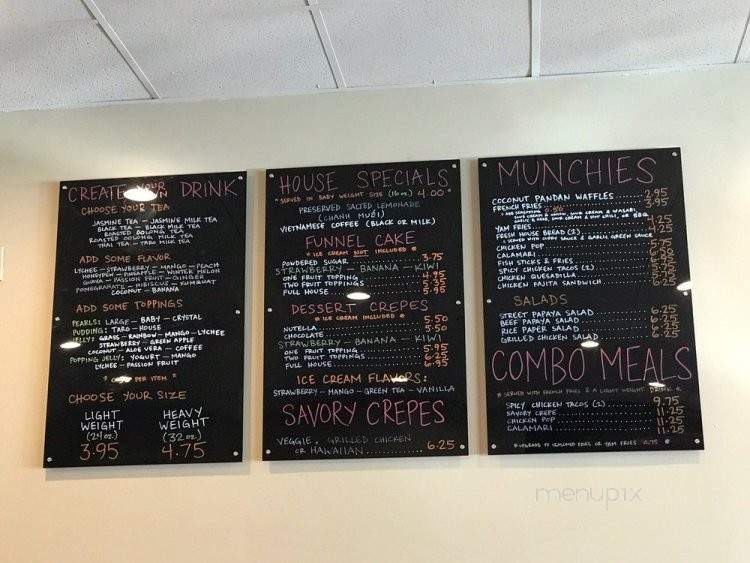 CREATE YOUR DRINK
CHOOSE YOUR TEA
JASMINE TEA - JASMINE MILK TEA
BLACK TEA - BLACK MILK TEA
ROASTED OOLONG TEA
ROASTED OOLONG MILK TEA
THAI TEA - TARO MILK TEA
ADD SOME FLAVOR
LYCHEE - STRAWBERRY - MANGO - PEACH
HONEYDEW - PINEAPPLE - WINTER MELON
GUAVA - PASSION FRUIT - GINGER
POMEGRANATE - HIBISCUS - KUMQUAT
COCONUT - BANANA
ADD SOME TOPPINGS
PEARLS: LARGE - BABY - CRYSTAL
PUDDING: TARO - HOUSE
JELLY: GRASS - RAINBOW - MANGO - LYCHEE
STRAWBERRY - GREEN APPLE
COCONUT - ALOE VERA - COFFEE
POPPING JELLY: YOGURT - MANGO
LYCHEE - PASSION FRUIT
PER ITEM *
CHOOSE YOUR SIZE
LIGHT WEIGHT (24oz.) 3.95
HEAVY WEIGHT (32oz.) 4.75
HOUSE SPECIALS
*SERVED IN BABY WEIGHT SIZE (16oz.) 4.00*
PRESERVED SALTED LEMONADE
(CHANH MUỐI)
VIETNAMESE COFFEE (BLACK OR MILK)
FUNNEL CAKE
* ICE CREAM NOT INCLUDED *
POWDERED SUGAR 3.75
STRAWBERRY - BANANA - KIWI
ONE FRUIT TOPPING 4.95
TWO FRUIT TOPPINGS 5.35
FULL HOUSE 5.95
DESSERT CREPES
* ICE CREAM INCLUDED *
NUTELLA 5.50
CHOCOLATE 5.50
STRAWBERRY - BANANA - KIWI
ONE FRUIT TOPPING 5.95
TWO FRUIT TOPPINGS 6.25
FULL HOUSE 6.95
ICE CREAM FLAVORS:
STRAWBERRY - MANGO - GREEN TEA - VANILLA
SAVORY CREPES
VEGGIE, GRILLED CHICKEN
OR HAWAIIAN 6.25
MUNCHIES
COCONUT PANDAN WAFFLES 2.95
FRENCH FRIES 3.95
YAM FRIES 4.25
FRESH HOUSE BREAD (2) 4.25
* SERVED WITH CURRY SAUCE & GARLIC GREEN SAUCE
CHICKEN POP 5.75
CALAMARI
FISH STICKS & FRIES
SPICY CHICKEN TACOS (2)
CHICKEN QUESADILLA
CHICKEN FAJITA SANDWICH 6.25
SALADS
STREET PAPAYA SALAD 6.25
BEEF PAPAYA SALAD 6.25
RICE PAPER SALAD 6.25
GRILLED CHICKEN SALAD 6.25
COMBO MEALS
* SERVED WITH FRENCH FRIES & A LIGHT WEIGHT DRINK *
SPICY CHICKEN TACOS (2) 9.75
SAVORY CREPE 11.25
CHICKEN POP 11.25
CALAMARI 11.25
* UPGRADE TO SEASONED FRIES OR YAM FRIES
menupix